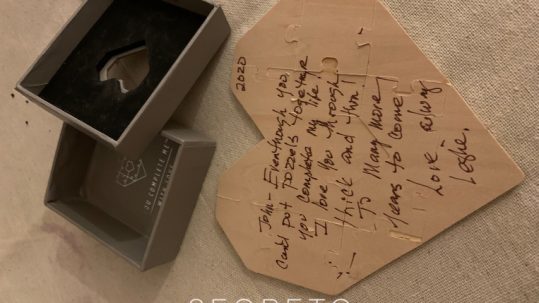 2020
John - Eventhough you,
cant put pozzels together
you complete my life
I love you through
thick and thin!
To Many more
years to come
Love always
Leslie.
TO COMPLETE ME
WITH
SECRETS